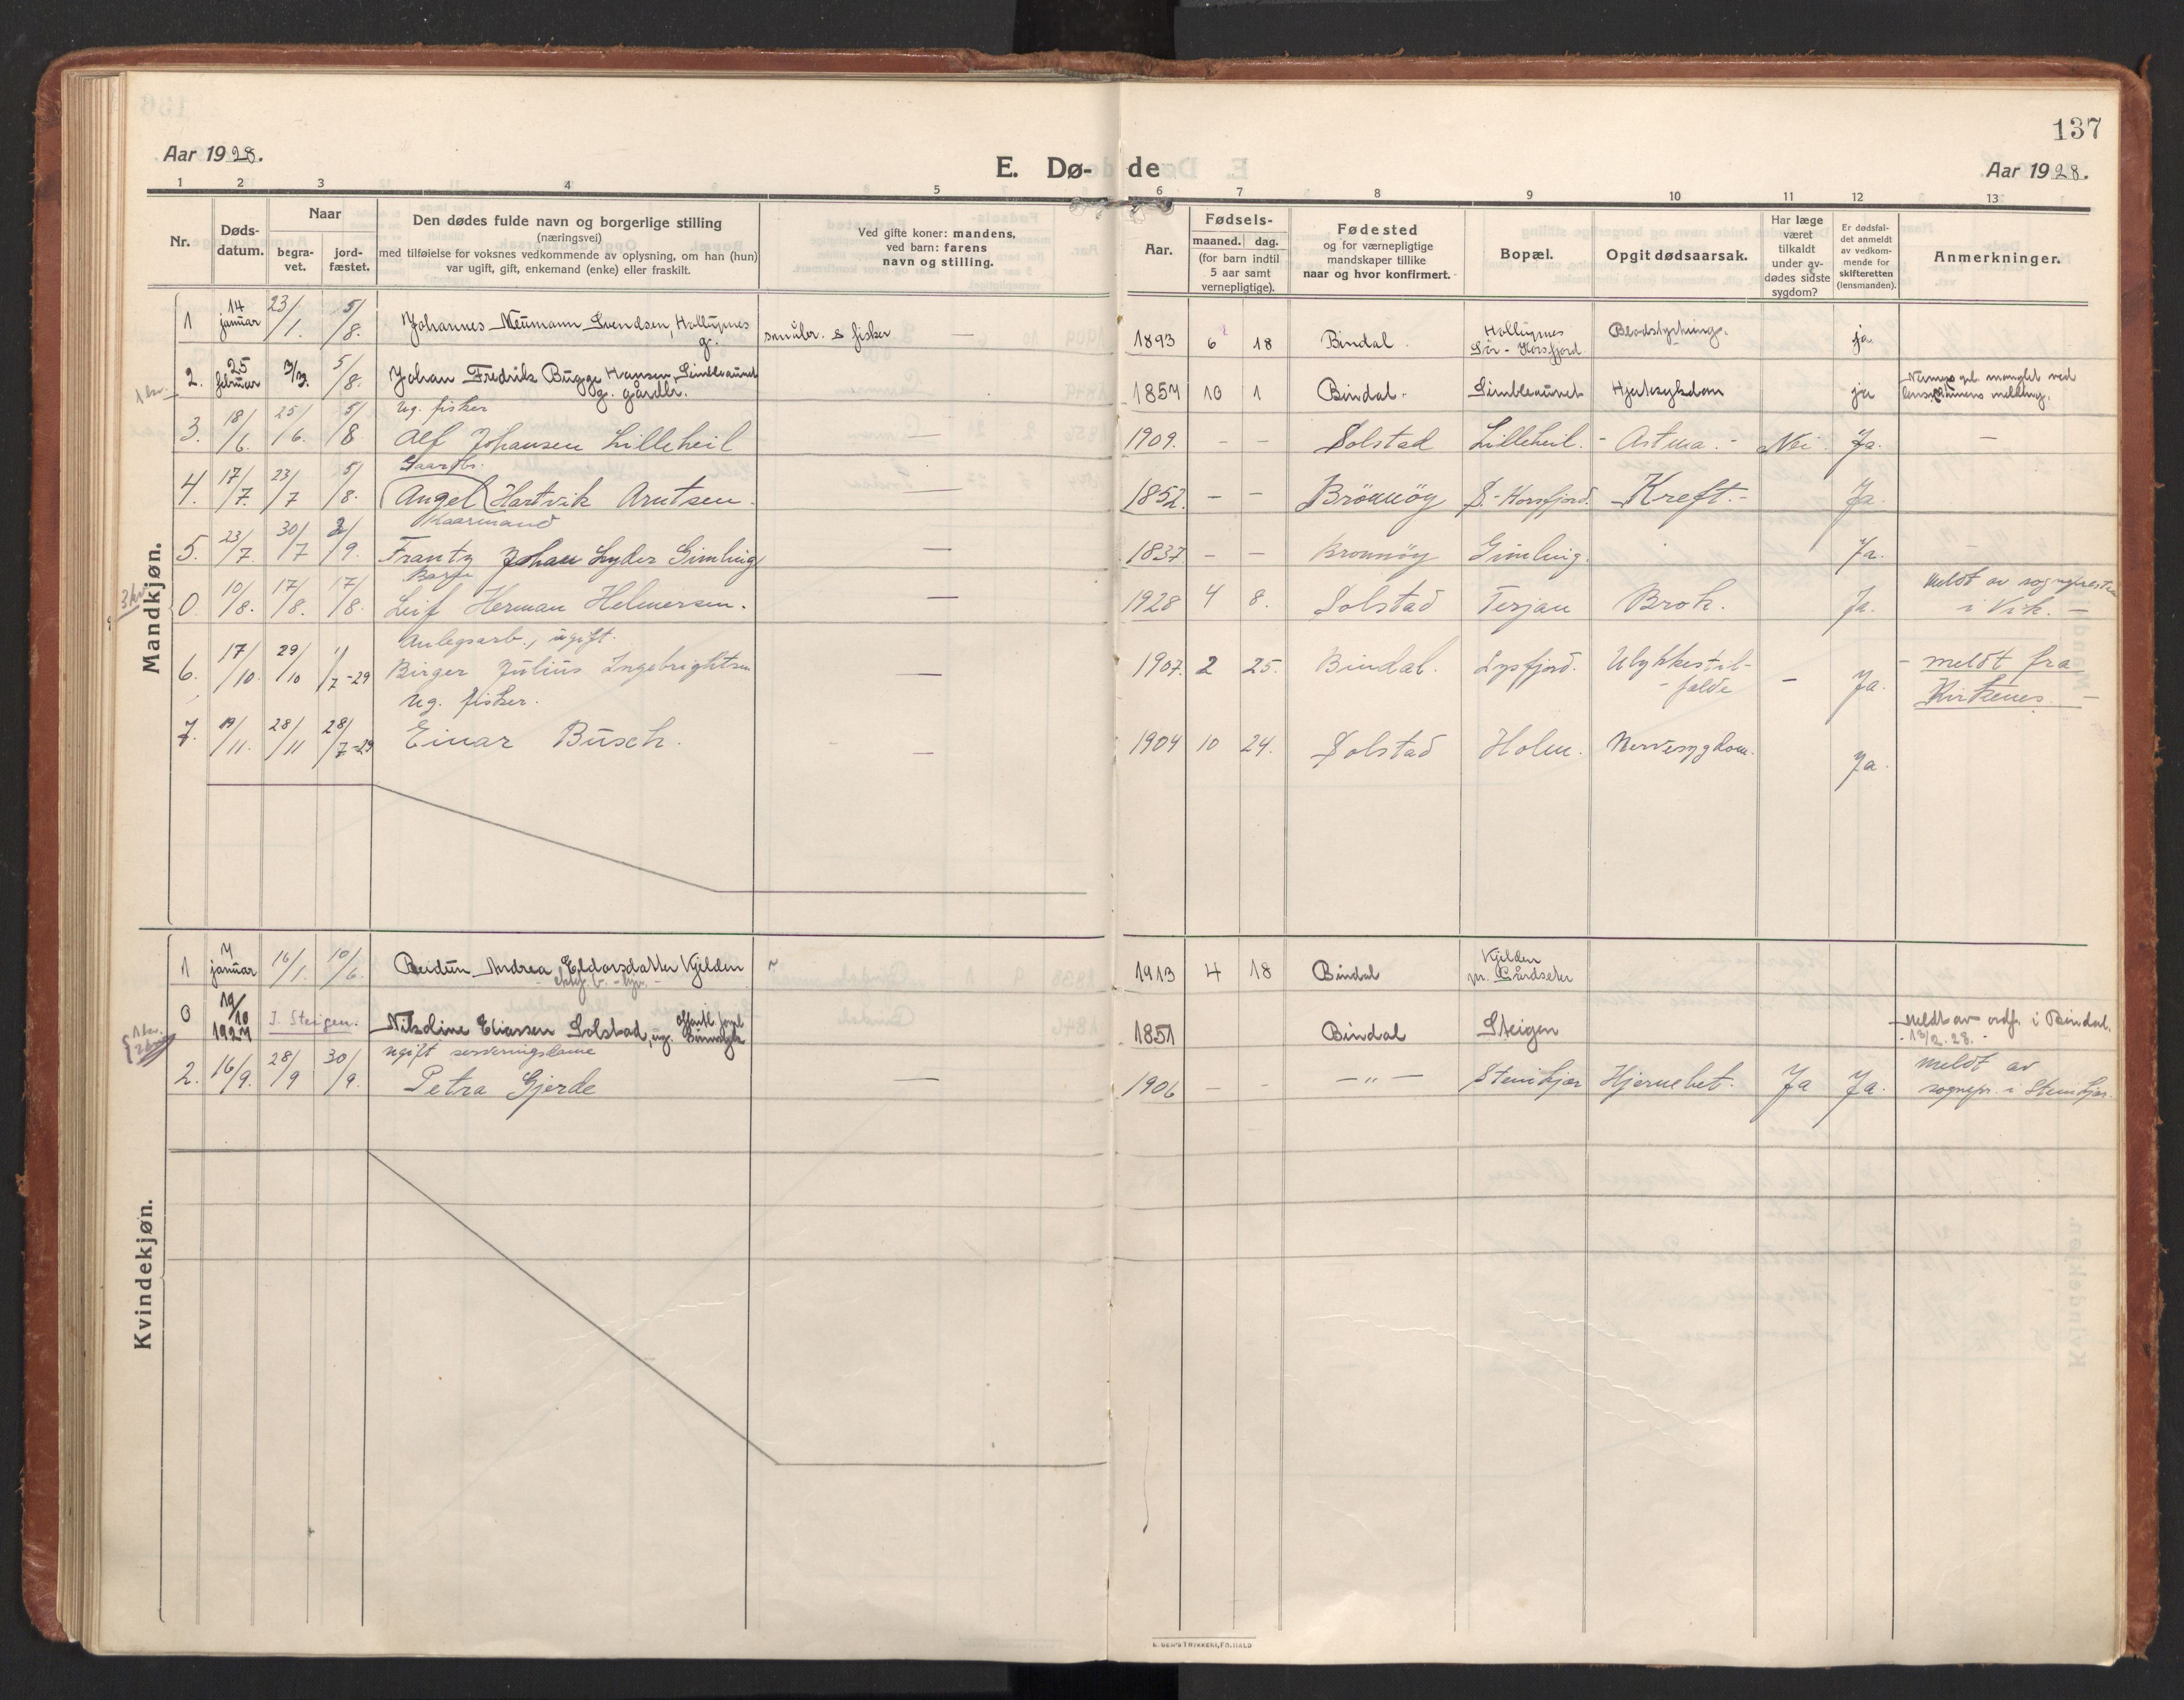 137
Aar 1928.
E. Dø- de
Aar 1928.
1 2 3 4 5 6 7 8 9 10 11 12 13
Nr.
Døds-
datum.
Naar
begra-
vet.
jord-
fæstet.
Den dødes fulde navn og borgerlige stilling
(næringsvei)
med tilføielse for voksnes vedkommende av oplysning, om han (hun)
var ugift, gift, enkemand (enke) eller fraskilt.
Ved gifte koner: mandens,
ved barn: farens
navn og stilling.
Aar.
Fødsels-
maaned. dag.
(for barn indtil
5 aar samt
vernepligtige).
Fødested
og for værnepligtige
mandskaper tillike
naar og hvor konfirmert.
Bopæl.
Opgit dødsaarsak.
Har læge
været
tilkaldt
under av-
dødes sidste
sygdom?
Er dødsfal-
det anmeldt
av vedkom-
mende for
skifteretten
(lensmanden).
Anmerkninger.
Mandkjøn.
1 14 januar 23/1. 5/8. Johannes Neumann Svendsen, g. småbr. & fisker — 1893 6 18 Bindal. Sør-Horsfjord ja
2. 25 februar 3/3. 5/8. Johan Fredrik Bugge Hansen, g. gårdbr. 1857 10 1 Bindal. ja
ug. fisker
3. 18/6. 25/6. 5/8 Alf Johansen Lilleheil — 1909. - - Solstad Lilleheil. - Astma. - Nei Ja. —
Gaardbr.
4. 17/7. 23/7 5/8. (Angel) Hartvik Arntsen. — 1852. - - Brönnöy S.-Horsfjord. Kreft.- Ja.
Kaarmand
5. 23/7. 30/7 2/9. Frantz Johan Lyder Gimling — 1837. - - Bronnöy Gimling. Ja. —
Barn
0. 10/8. 17/8. 17/8. Leif Herman Helmersen. — 1928 4 8. Solstad Terjan Brok. Ja. Meldt av sogneprest
i Vik. —
Anlegsarb., ugift.
6. 17/10. 29/10 1/7-29 Birger Julius Ingebrigtsen — 1907. 2 25. Bindal. Lysfjord. Ulykkestil-
fælde - Ja. - meldt fra
Kirkenes. —
ug. fisker.
7. 19/11. 28/11 28/7-29 Einar Busch. — 1904 10 24. Solstad Holm. Nervesygdom. Ja.
Kvindekjøn.
1 7 januar 16/1. 10/6. Andrea Eldorsdatter Kjelden 1913 4 18 Bindal Kjelden
pr. Gårdseter
0 19/10 1927 I Steigen. Nikoline Eliassen Solstad, ug. 1851 Bindal Steigen Meldt av ordf. i Bindal.
13/2. 28.
ugift serveringsdame
2. 16/9. 28/9 30/9. Petra Gjerde — 1906 - - —"— Stenkjær Hjernebet. Ja Ja. meldt av
sognepr. i Stenkjær.